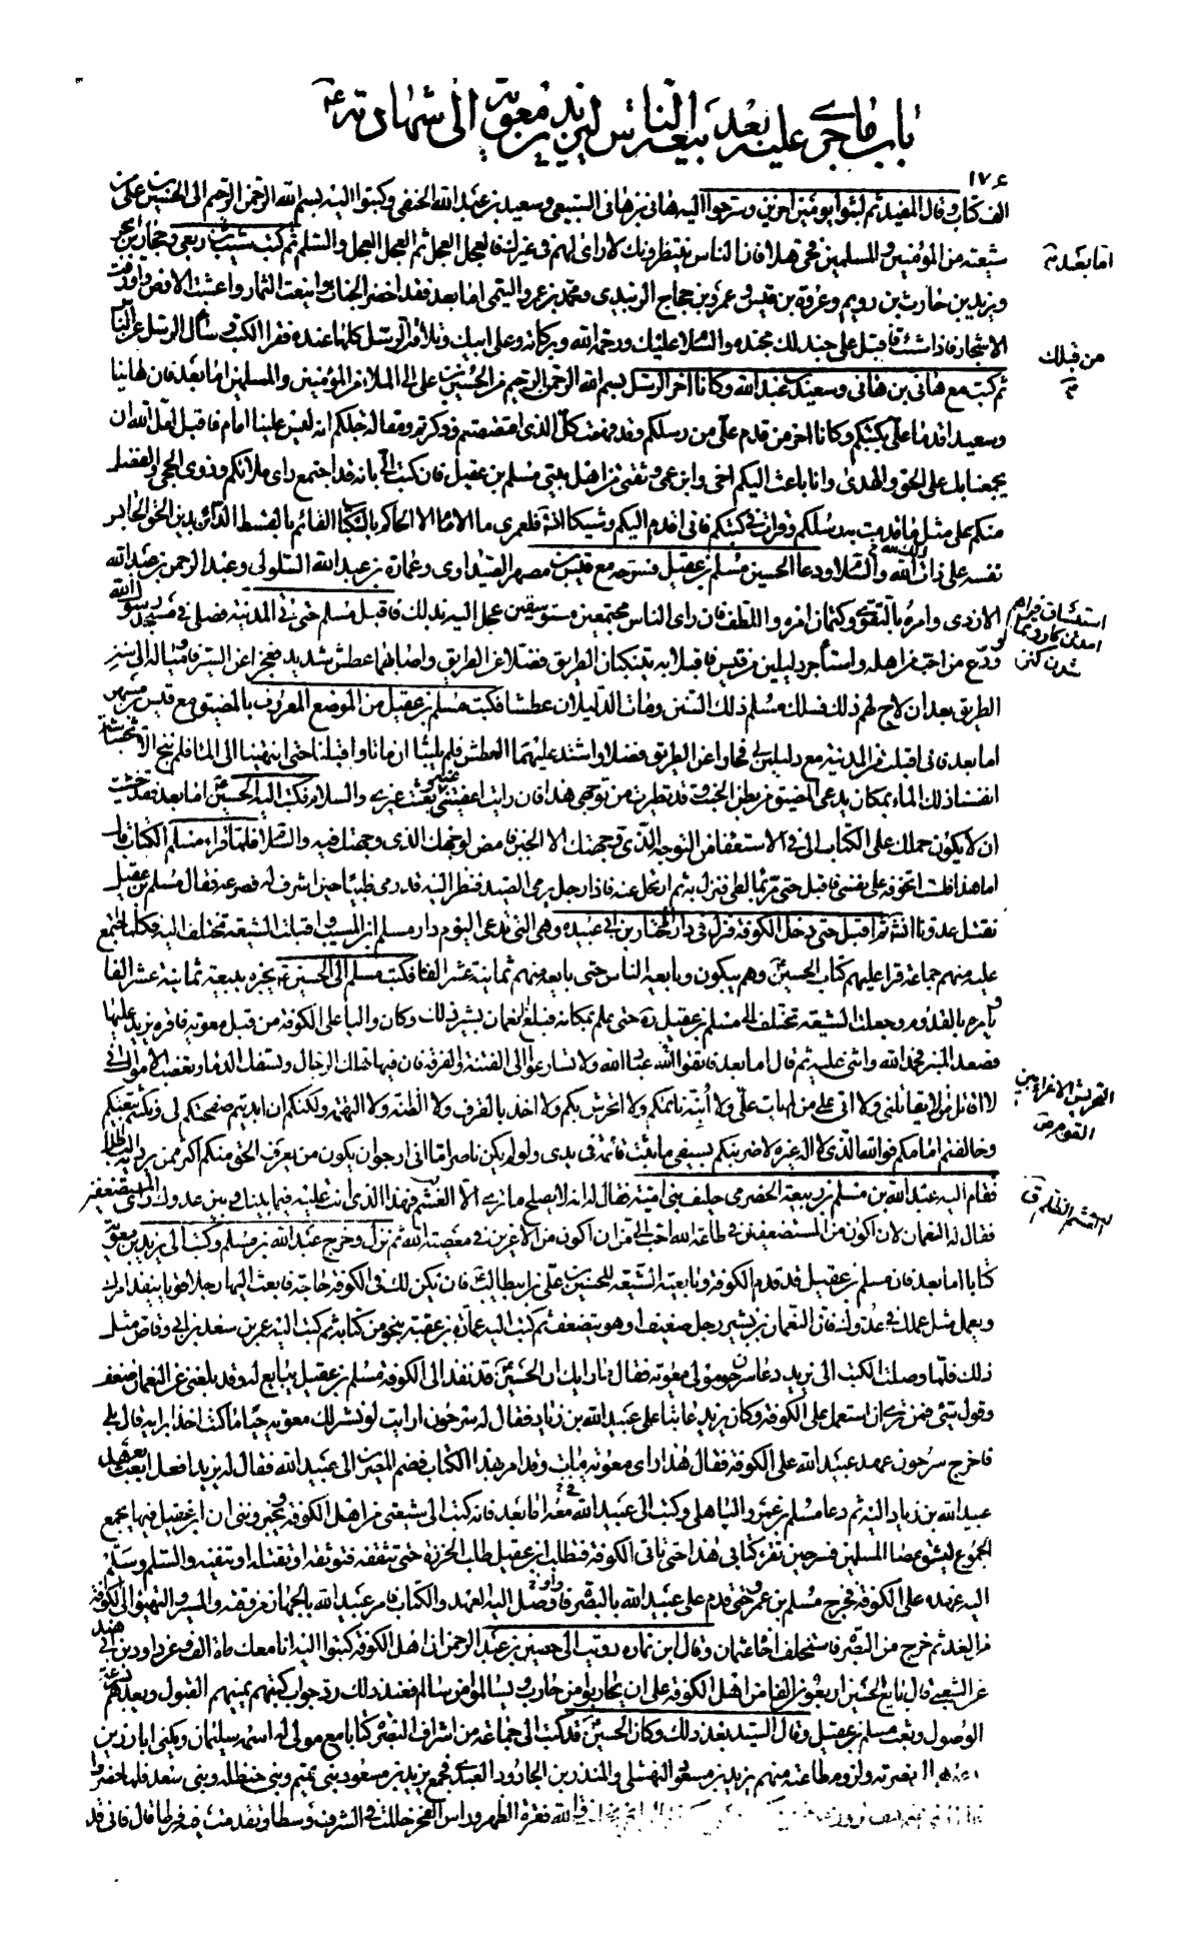 باب ما جرى عليه بعد بيعة الناس ليزيد بن معوية الى شهادته
١٧٤
الف كتاب وقال المفيد ثم لبثوا يومين اخرين وسرحوا اليه هانى بن هانى السبيعى وسعيد بن عبد الله الحنفى وكتبوا اليه بسم الله الرحمن الرحيم الى الحسين بن على من
شيعته من المؤمنين والمسلمين فحى هلا فان الناس ينتظرونك لا راى لهم فى غيرك فالعجل العجل ثم العجل العجل والسلم ثم كتب شبث بن ربعى وحجار بن ابجر
اما بعد
ويزيد بن حارث بن رويم وعروة بن قيس وعمرو بن حجاج الزبيدى ومحمد بن عمرو التيمى اما بعد فقد اخضر الجنات واينعت الثمار واعشبت الارض واورقت
الاشجار فاذا شئت فاقبل على جند لك مجنده والسلام عليك ورحمة الله وبركاته وعلى ابيك وتلاقت الرسل كلها عنده فقرا الكتب وسال الرسل عن الناس
من قبلك
ثم كتب مع هانى بن هانى وسعيد بن عبد الله وكانا اخر الرسل بسم الله الرحمن الرحيم من الحسين بن على الى الملا من المؤمنين والمسلمين اما بعد فان هانيا
وسعيدا قدما على بكتبكم وكانا اخر من قدم على من رسلكم وقد فهمت كل الذى اقتصصتم وذكرتم ومقالة جلكم انه ليس علينا امام فاقبل لعل الله ان
يجمعنا بك على الحق والهدى وانا باعث اليكم اخى وابن عمى وثقتى من اهل بيتى مسلم بن عقيل فان كتب الى بانه قد اجتمع راى ملائكم وذوى الحجى والفضل
منكم على مثل ما قدمت به رسلكم وقرات فى كتبكم فانى اقدم اليكم وشيكا انشاء الله فلعمرى ما الامام الا الحاكم بالكتاب القائم بالقسط الدائن بدين الحق الحابس
نفسه على ذات الله والسلام ودعا الحسين مسلم بن عقيل فسرحه مع قيس بن مصهر الصيداوى وعمارة بن عبد الله السلولى وعبد الرحمن بن عبد الله
الازدى وامره بالتقوى وكتمان امره واللطف فان راى الناس مجتمعين مستوسقين عجل اليه بذلك فاقبل مسلم حتى اتى المدينة فصلى فى مسجد رسول الله
ودع من احب من اهله واستاجر دليلين من قيس فاقبلا به يتنكبان الطريق فضلا عن الطريق واصابهما عطش شديد فعجزا عن السير فاومئا له الى سنن
الطريق بعد ان لاح لهم ذلك فسلك مسلم ذلك السنن ومات الدليلان عطشا فكتب مسلم بن عقيل من الموضع المعروف بالمضيق مع قيس بن مسهر
اما بعد فانى اقبلت من المدينة مع دليلين لى فجازا عن الطريق فضلا واشتد عليهما العطش فلم يلبثا ان ماتا واقبلنا حتى انتهينا الى الماء فلم ننج الا بحشاشة
انفسنا وذلك الماء بمكان يدعى المضيق من بطن الخبت وقد تطيرت من توجهى هذا فان رايت اعفيتنى وبعثت غيرى والسلام فكتب اليه الحسين اما بعد فقد خشيت
ان لا يكون حملك على الكتاب الى فى الاستعفاء من التوجه الذى وجهتك الا الجبن فامض لوجهك الذى وجهتك فيه والسلام فلما قراء مسلم الكتاب قال
اما هذا فلست اتخوفه على نفسى فاقبل حتى مر بماء لطى فنزل به ثم ارتحل عنه فاذا رجل يرمى الصيد فنظر اليه قد رمى ظبيا حين اشرف له فصرعه فقال مسلم بن عقيل
نقتل عدونا انشاء الله ثم اقبل حتى دخل الكوفة فنزل فى دار المختار بن ابى عبيده وهى التى تدعى اليوم دار مسلم بن المسيب واقبلت الشيعة تختلف اليه فكلما اجتمع
عليه منهم جماعة قرا عليهم كتاب الحسين وهم يبكون وبايعه الناس حتى بايعه منهم ثمانية عشر الفا فكتب مسلم الى الحسين يخبره ببيعة ثمانية عشر الفا
ويامره بالقدوم وجعلت الشيعة تختلف الى مسلم بن عقيل ره حتى علم بمكانه فبلغ النعمان بن بشير ذلك وكان واليا على الكوفة من قبل معوية فاقره يزيد عليها
فصعد المنبر فحمد الله واثنى عليه ثم قال اما بعد فاتقوا الله عباد الله ولا تسارعوا الى الفتنة والفرقة فان فيها تهلك الرجال وتسفك الدماء وتغصب الاموال انى
لا اقاتل من لا يقاتلنى ولا اتى على من لم يات على ولا انبه نائمكم ولا اتحرش بكم ولا اخذ بالقرف ولا الظنة ولا التهمة ولكنكم ان ابديتم صفحتكم لى ونكثتم بيعتكم
التحريش الاغراء بين القوم ص
وخالفتم امامكم فوالله الذى لا اله غيره لاضربنكم بسيفى ما ثبت قائمه فى يدى ولو لم يكن ناصر اما انى ارجو ان يكون من يعرف الحق منكم اكثر ممن يرديه الباطل
فقام اليه عبد الله بن مسلم بن ربيعة الحضرمى حليف بنى امية فقال له انه لا يصلح ما ترى الا الغشم فهذا الذى انت عليه فيما بينك وبين عدوك راى المستضعفين
الغشم الظلم ق
فقال له النعمان لان اكون من المستضعفين فى طاعة الله احب الى من ان اكون من الاعزين فى معصية الله ثم نزل وخرج عبد الله بن مسلم وكتب الى يزيد بن معوية
كتابا اما بعد فان مسلم بن عقيل قد قدم الكوفة وبايعته الشيعة للحسين بن على بن ابيطالب فان يكن لك فى الكوفة حاجة فابعث اليها رجلا قويا ينفذ امرك
ويعمل مثل عملك فى عدوك فان النعمان بن بشير رجل ضعيف او هو يتضعف ثم كتب اليه عمارة بن عقبة بنحو من كتابه ثم كتب اليه عمر بن سعد بن ابى وقاص مثل
ذلك فلما وصلت الكتب الى يزيد دعا سرحون مولى معوية فقال ما رايك ان الحسين قد نفذ الى الكوفة مسلم بن عقيل يبايع له وقد بلغنى عن النعمان ضعف
وقول سيئ فمن ترى ان استعمل على الكوفة وكان يزيد عاتبا على عبيد الله بن زياد فقال له سرحون ارايت لو نشر لك معوية حيا ما كنت اخذا برايه قال بلى
فاخرج سرحون عهد عبيد الله على الكوفة فقال هذا راى معوية مات وقد امر بهذا الكتاب فضم المصرين الى عبيد الله فقال له يزيد افعل ابعث بعهد
عبيد الله بن زياد اليه ثم دعا مسلم بن عمرو الباهلى وكتب الى عبيد الله معه اما بعد فانه كتب الى شيعتى من اهل الكوفة ويخبروننى ان ابن عقيل فيها يجمع
الجموع ليشق عصا المسلمين فسر حين تقرء كتابى هذا حتى تاتى الكوفة فتطلب ابن عقيل طلب الخرزة حتى تثقفه فتوثقه او تقتله او تنفيه والسلم وسلم
اليه عهده على الكوفة فخرج مسلم بن عمرو حتى قدم على عبيد الله بالبصرة واوصل اليه العهد والكتاب فامر عبيد الله بالجهاز من وقته والمسير والتهيؤ الى الكوفة
من الغد ثم خرج من البصرة فاستخلف اخاه عثمان وقال ابن نما ره رويت الى حصين بن عبد الرحمن ان اهل الكوفة كتبوا اليه انا معك مائة الف وعن داود بن ابى هند
عن الشعبى قال بايع الحسين اربعون الفا من اهل الكوفة على ان يحاربوا من حارب ويسالموا من سالم فعند ذلك رد جواب كتبهم يمنيهم القبول ويعدهم بسرعة
الوصول وبعث مسلم بن عقيل وقال السيد بعد ذلك وكان الحسين قد كتب الى جماعة من اشراف البصرة كتابا مع مولى له اسمه سليمان ويكنى ابا رزين
بنصرته ولزوم طاعته منهم يزيد بن مسعود النهشلى والمنذر بن الجارود العبدى فجمع يزيد بن مسعود بنى تميم وبنى حنظله وبنى سعد فلما حضروا
والله فقرة الظهر وراس الفخر حللت فى الشرف وسطا وتقدمت فيه فرطا قال فانى قد